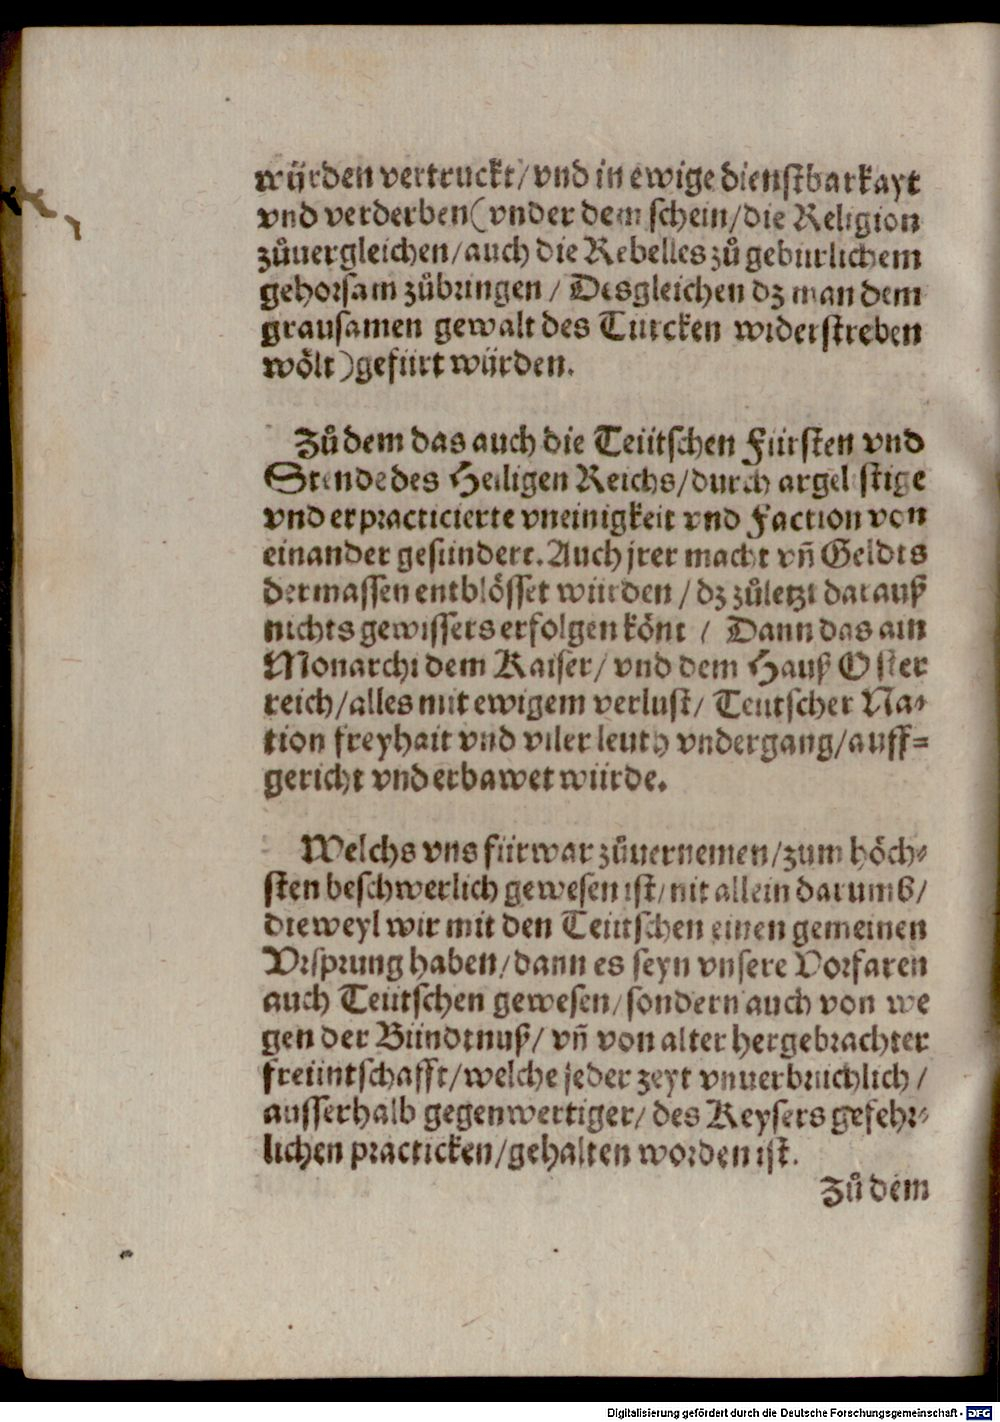 würden vertruckt/ vnd in ewige dienstbarkayt
vnd verderben (vnder dem schein/ die Religion
zůuergleichen/ auch die Rebelles zů geburlichem
gehorsam zůbringen / Desgleichen dz man dem
grausamen gewalt des Turcken widerstreben
wölt) gefürt würden.
Zů dem das auch die Teütschen Fürsten vnd
Stende des Heiligen Reichs/ durch argelistige
vnd erpracticierte vneinigkeit vnd Faction von
einander gesündert. Auch jrer macht vñ Geldts
dermassen entblösset würden / dz zůletzt darauß
nichts gewissers erfolgen könt / Dann das ain
Monarchi dem Kaiser/ vnd dem Hauß Oster
reich/ alles mit ewigem verlust/ Teutscher Na-
tion freyhait vnd viler leuth vndergang/ auff=
gericht vnd erbawet würde.
Welchs vns fürwar zůuernemen/ zum höch-
sten beschwerlich gewesen ist/ nit allein darumb/
dieweyl wir mit den Teütschen einen gemeinen
Vrsprung haben/ dann es seyn vnsere Vorfaren
auch Teütschen gewesen/ sondern auch von we
gen der Bündtnuß/ vñ von alter hergebrachter
freüntschafft/ welche jeder zeyt vnuerbruchlich /
ausserhalb gegenwertiger/ des Keysers gefehr-
lichen practicken/ gehalten worden ist.
Zů dem
Digitalisierung gefördert durch die Deutsche Forschungsgemeinschaft - DFG